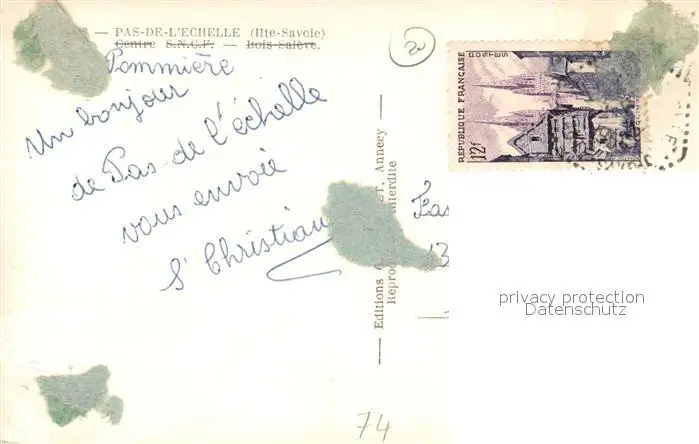 — PAS-DE-L'ECHELLE (Hte-Savoie)
Centre S.N.C.F. — Bois-Salève.
Pommière
Un bonjour
de Pas-de l'échelle
vous envoie
S' Christian
— Editions
ET, Annecy —
Reprod
interdite
20
POSTES
REPUBLIQUE FRANÇAISE
12f
13
privacy protection
Datenschutz
74